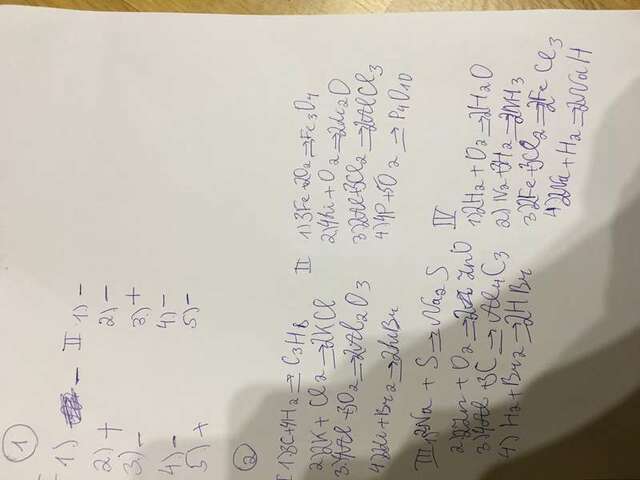 1
I
1) –
2) +
3) –
4) –
5) +
II 1) –
2) –
3) +
4) –
5) –
2
I 1) 3C + 4H2 → C3H8
2) 2K + Cl2 → 2KCl
3) 4Al + 3O2 → 2Al2O3
4) 2Li + Br2 → 2LiBr
II 1) 3Fe + 2O2 → Fe3O4
2) 4Li + O2 → 2Li2O
3) 2Al + 3Cl2 → 2AlCl3
4) 4P + 5O2 → P4O10
III 1) 2Na + S → Na2S
2) 2Zn + O2 → 2ZnO
3) 4Al + 3C → Al4C3
4) H2 + Br2 → 2HBr
IV
1) 2H2 + O2 → 2H2O
2) N2 + 3H2 → 2NH3
3) 2Fe + 3Cl2 → 2FeCl3
4) 2Na + H2 → 2NaH